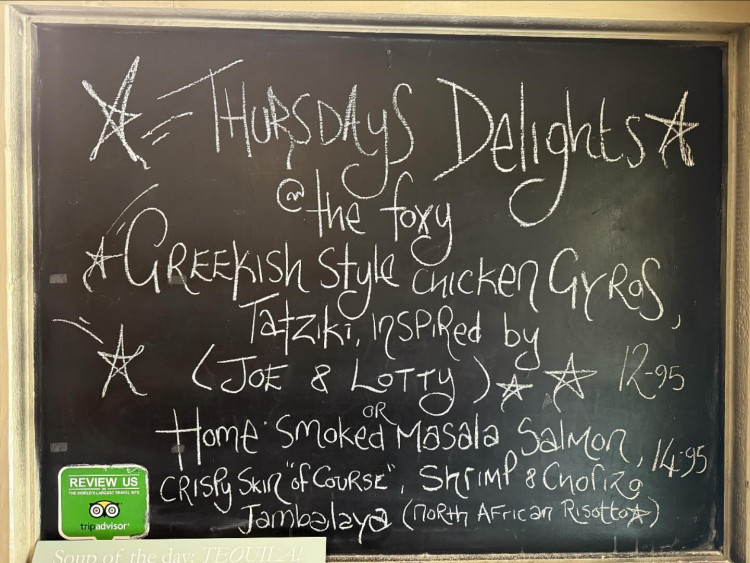 THURSDAYS Delights
@ the foxy
GREEKISH Style chicken GYROS,
Tatziki, INSPIRed by
(JOE & LOTTY) 12-95
OR
Home Smoked Masala Salmon, 14-95
CRISPY SKIN "of COURSE", Shrimp & Chorizo
Jambalaya (North African Risotto)
REVIEW US
ON
THE WORLD'S LARGEST TRAVEL SITE
tripadvisor
Soup of the day: TEQUILA!